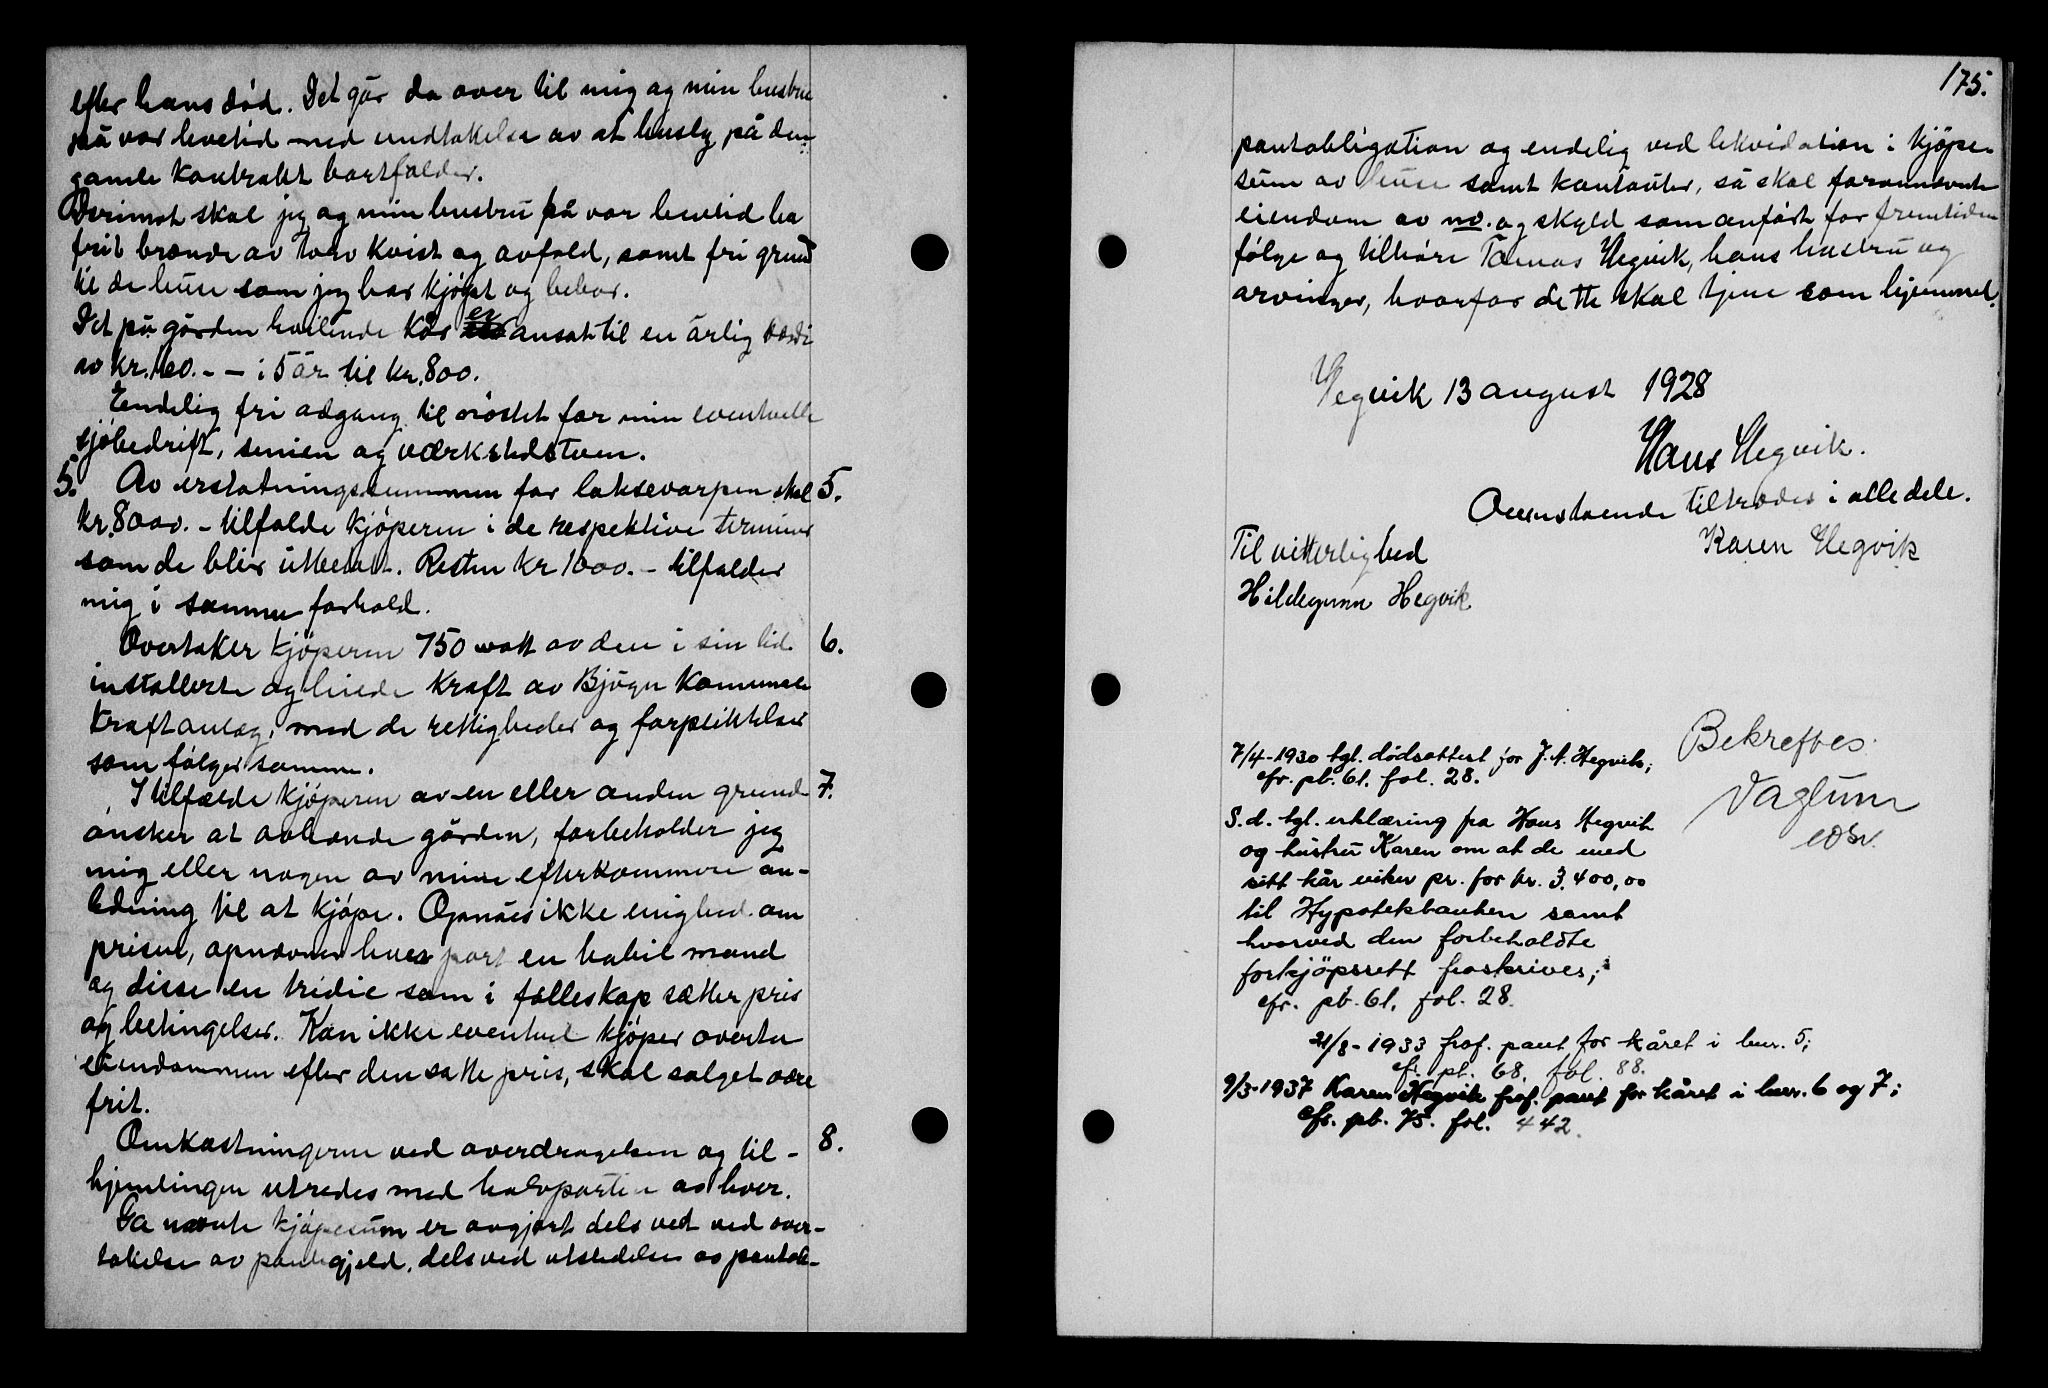 efter hans död. Det går da over til mig og min hustru
på vor levetid med undtakelse av at husly på den
gamle kontrakt bortfalder.
Derimot skal jeg og min hustru på vor levetid ha
frit brænde av torv kvist og avfald, samt fri grund
til de huse som jeg har kjöpt og bebor.
Det på gården hvilende kår er ansat til en årlig værdi
av kr. 160.- - i 5 år til kr. 800.
Endelig fri adgang til nöstet for min eventuelle
sjöbedrift, smien og værkstedstuen.
5. Av erstatningssummen for laksevarpen skal 5.
kr. 8000.- tilfalde kjöperen i de respektive terminer
som de blir utbetalt. Resten kr 1000.- tilfalder
mig i samme forhold.
Overtaker kjöperen 750 watt av den i sin tid 6.
installerte og leiede kraft av Bjugn Komunale
Kraftanlæg, med de rettigheder og forpliktelser
som fölger samme.
I tilfælde kjöperen av en eller anden grund 7.
önsker at avhænde gården, forbeholder jeg
mig eller nogen av mine efterkommere an-
ledning til at kjöpe. Opnåes ikke enighed om
prisen, opnævner hver part en habil mand
og disse en tredie som i fælleskap sætter pris
og betingelser. Kan ikke eventuel kjöper overta
eiendommen efter den satte pris, skal salget være
frit.
Omkostningerne ved overdragelsen og til- 8.
hjemlingen utredes med halvparten av hver.
Da nævnte kjöpesum er avgjort dels ved ved over-
takelse av pantegjeld, dels ved utstedelse av pantob-
175.
pantobligation og endelig ved likvidation i kjöpe-
sum av huse samt kontanter, så skal forannævnte
eiendom av no. og skyld som anfört for fremtiden
fölge og tilhöre Tomas Hegvik, hans hustru og
arvinger, hvorfor dette skal tjene som hjemmel.
Hegvik 13 august 1928
Hans Hegvik.
Ovenstaende tiltrædes i alle dele.
Karen Hegvik
Til vitterlighed
Hildegunn Hegvik
Bekreftes
Vaglum
7/4-1930 tgl. dödsattest for J. A. Hegvik;
cfr. pb. 61. fol. 28.
S. d. tgl. erklæring fra Hans Hegvik
og hustru Karen om at de med
sitt kår viker pr. for kr. 3.400,00
til Hypotekbanken samt
hvorved den forbeholdte
forkjöpsrett fraskrives;
cfr. pb. 61, fol. 28.
21/8-1933 fraf. pant for kåret i bnr. 5;
cfr. pb. 68. fol. 88.
9/3-1937 Karen Hegvik fraf. pant for kåret i bnr. 6 og 7;
cfr. pb. 75. fol. 442.